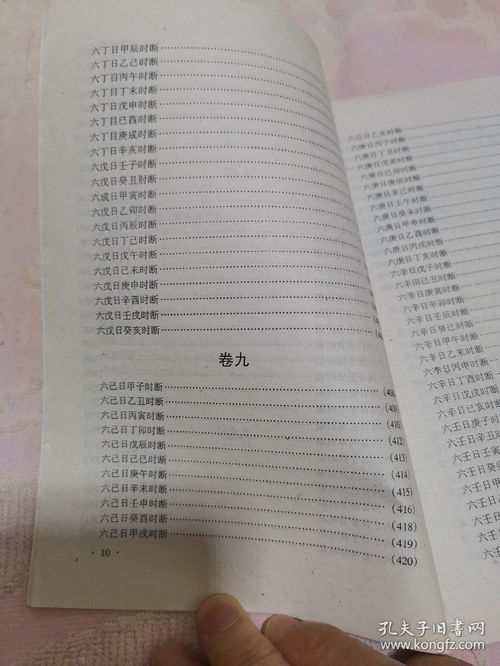 六丁日甲辰时断
六丁日乙己时断
六丁目丙午时断
六丁目丁未时断
六丁日戊申时断
六丁目已酉时断
六丁目庚成时断
六丁日辛亥时断
六戊日壬子时断
六戊日癸丑时断
六成日甲寅时断
六戊日乙卯时断
六戊日丙辰时断
六戊日丁己时断
六戊日戊午时断
六戊日己未时断
六戊日庚申时断
六戊日辛酉时断
六戊日壬戌时断
六戊日癸亥时断
卷九
六己日甲子时断
六己日乙丑时断 (409)
六己日丙寅时断 (410)
六己日丁卯时断
六己日戊辰时断 (412)
六己日己巳时断 (413)
六己日庚午时断 (414)
六己日辛末时断 (415)
六己日壬申时断 (416)
六己日癸酉时断 (418)
六己日甲戌时断 (419)
(420)
· 10 ·
六己日乙亥时断
六庚日丙子时断
六庚日丁丑时断
六庚日戊寅时断
六庚日己卯时断
六庚日庚辰时断
六庚日辛己时断
六庚日壬午时断
六庚日癸未时断
六庚日甲申时断
六庚日乙酉时断
六庚日丙戌时断
六庚日丁亥时断
六辛日戊子时断
六辛田己丑时断
六辛日庚寅时断
六辛日辛卯时断
六辛日壬辰时断
六辛日癸己时断
六辛日甲午时断
六辛日乙末时断
六李日丙申时断
六辛日丁酉时断
六辛日戊戌时断
六辛日己亥时断
六壬日庚子时
六壬日辛丑时
六壬日壬寅
六壬日癸卯
六壬日甲
六壬日
六壬日
六壬日
六壬
孔夫子旧书网
www.kongfz.com